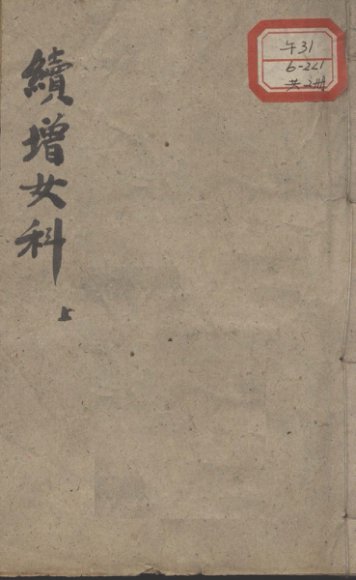 續增女科
上
午31
6-221
共2册